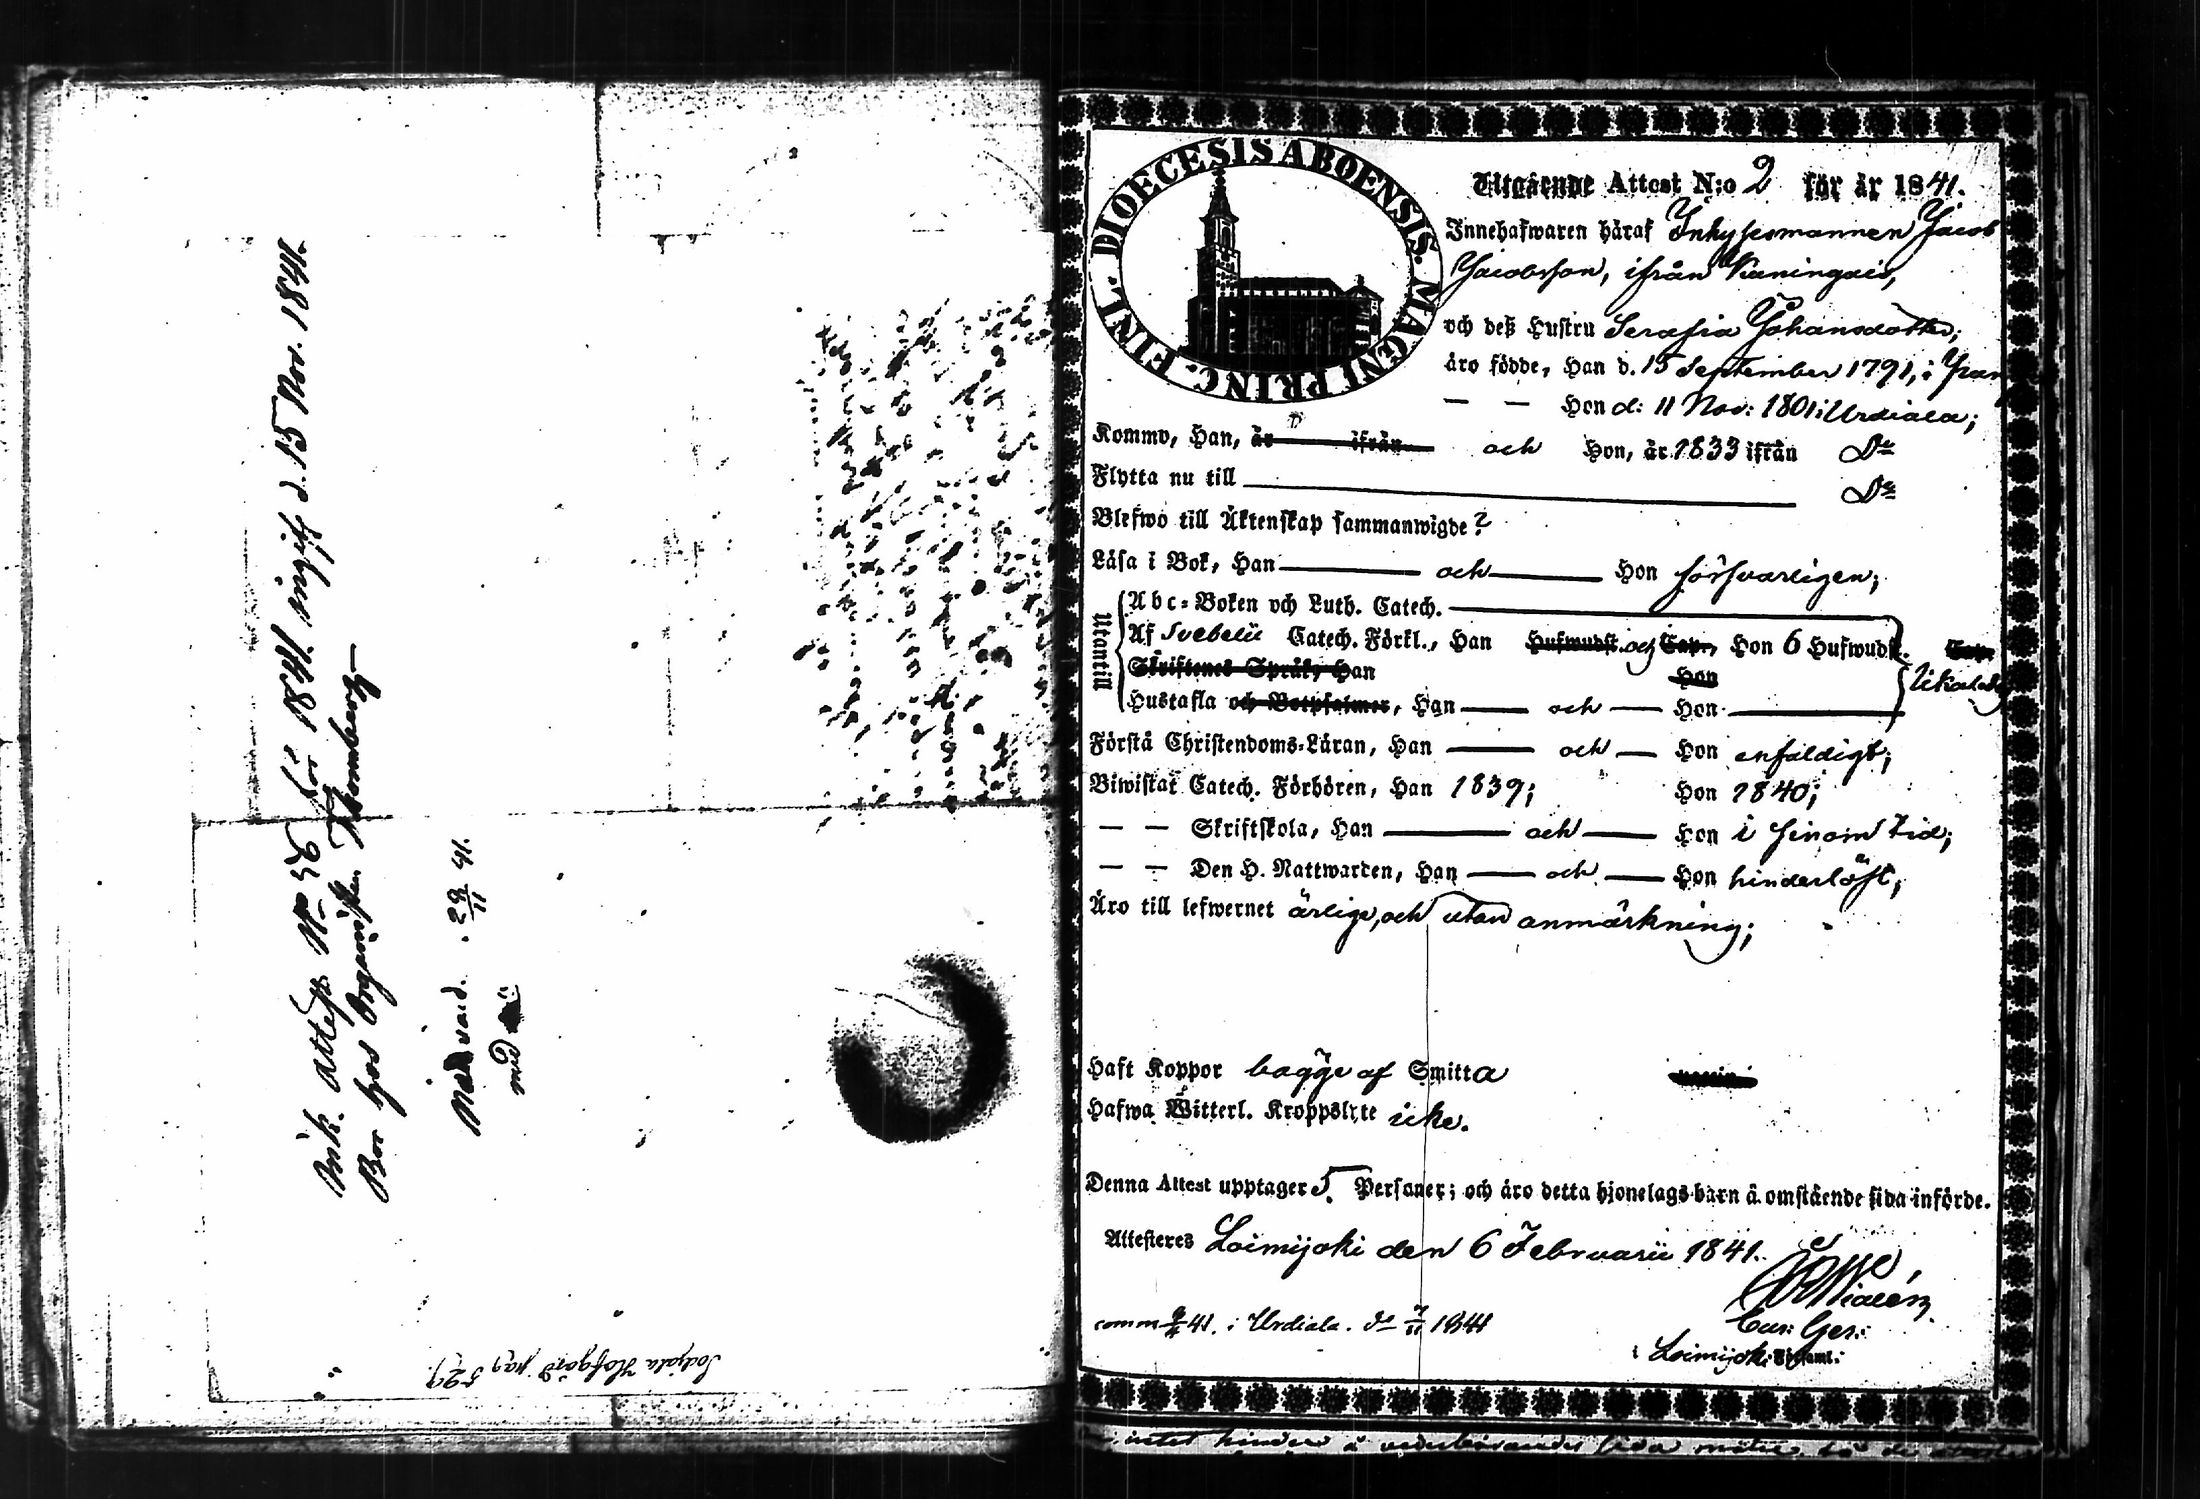 Ink. Attest No 23 för 1841 ingift d. 15 Nov. 1841.
Bor hos Organisten Thomberg
vard. 29/11 41.
med
Sodjala Hofgård pag 527.
FINL. DIOECESIS ABOENSIS. MAGNI PRINC.
Utgående Attest N:o 2 för år 1841.
Innehafwaren häraf Inhysesmannen Jacob
Jacobsson, ifrån Kaningais,
och deß Hustru Serafia Johansdotter;
äro födde, Han d. 15 September 1791, i
— — Hon d: 11 Nov: 1801 i Urdiala;
Kommo, Han, år ifrån och Hon, år 1833 ifrån Do
Flytta nu till Do
Blefwo till Äktenskap sammanwigde ?
Läsa i Bok, Han — och — Hon försvarligen;
Utantill
Abc-Boken och Luth. Catech. —
Af Svebelii Catech. Förkl., Han Hufwudst. och Cap., Hon 6 Hufwudst. Cap.
Skriftenes Språk, Han Hon
Hustafla och Botpsalmer, Han — och — Hon —
Förstå Christendoms-Läran, Han — och — Hon enfaldigt;
Biwistat Catech. Förhören, Han 1839; Hon 1840;
— — Skriftskola, Han — och — Hon i sinom tid;
— — Den H. Nattwarden, Han — och — Hon hinderlöst;
Äro till lefwernet ärlige, och utan anmärkning;
Haft Koppor bägge af Smitta
Hafwa Witterl. Kroppslyte icke.
Denna Attest upptager 5. Personer; och äro detta hjonelags barn å omstående sida införde.
Attesteres Loimijoki den 6 Februarii 1841.
Widén
Cur: Ger:
comm 41. i Urdiala. 1841
i Loimijoki Församl:
intet hinder å